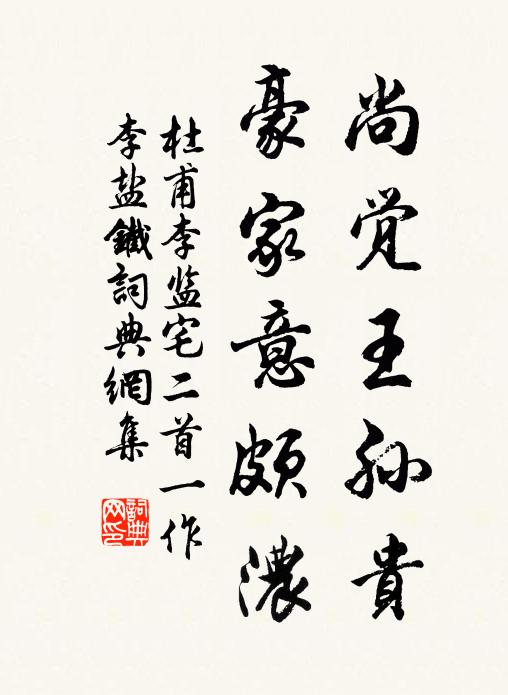 尚觉王孙貴
豪家意頗濃
杜甫李监宅二首一作
李盐鐵詞典網集
詞典网印